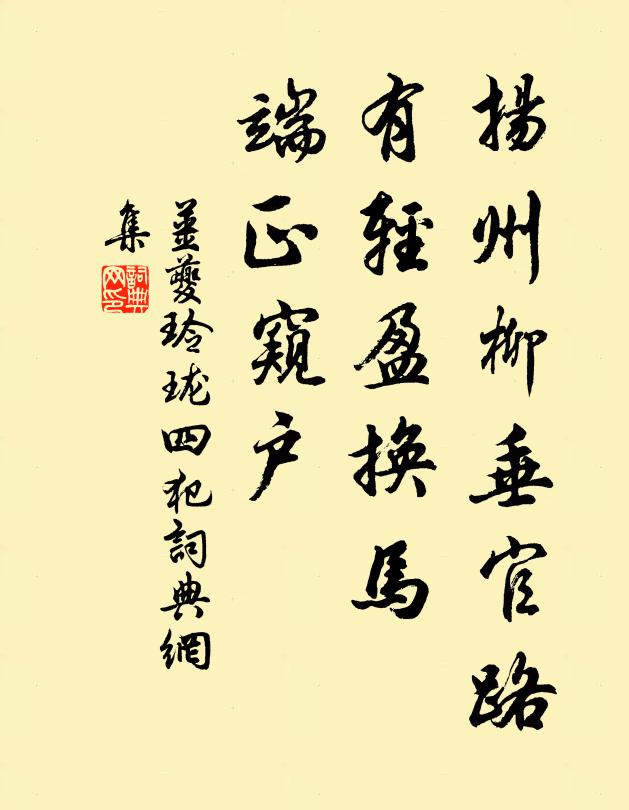 揚州柳垂官路
有輕盈換馬
端正窺户
姜夔玲瓏四犯詞典網
集
詞典網印